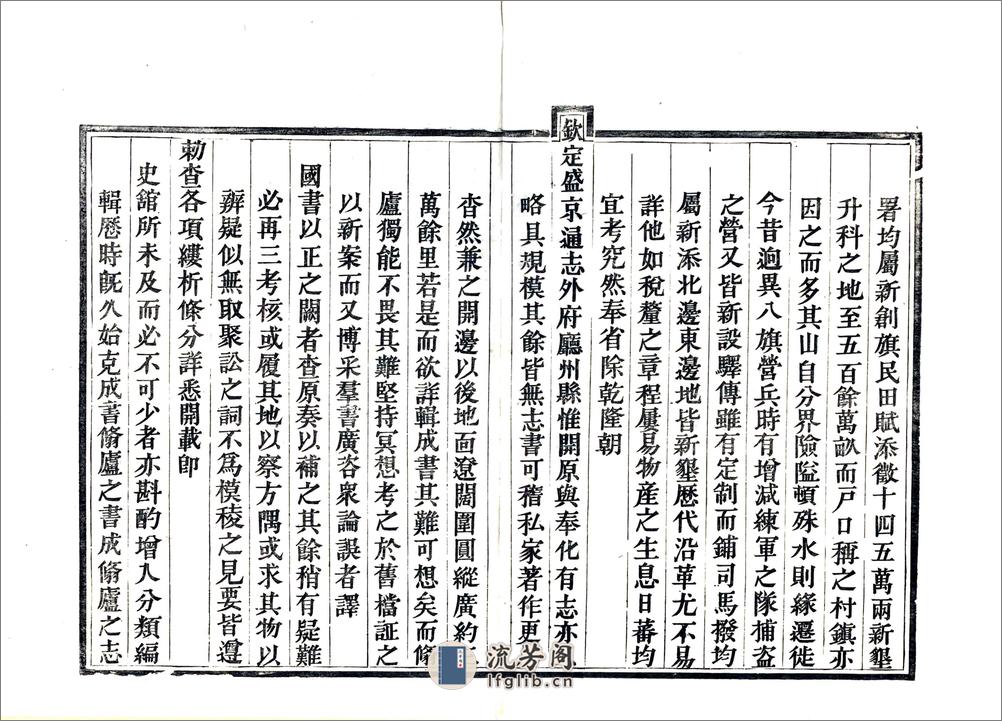 署均屬新創旗民田賦添徵十四五萬兩新墾
升科之地至五百餘萬畝而戸口稱之村鎮亦
因之而多其山自分界險隘頓殊水則緣遷徙
今昔逈異八旗營兵時有增減練軍之隊捕盜
之營又皆新設驛傳雖有定制而鋪司馬撥均
屬新添北邊東邊地皆新墾歷代沿革尤不易
詳他如稅釐之章程屢易物産之生息日蕃均
宜考究然奉省除乾隆朝
欽定盛京通志外府廳州縣惟開原與奉化有志亦
略具規模其餘皆無志書可稽私家著作更
杳然兼之開邊以後地面遼闊圍圓縱廣約
萬餘里若是而欲詳輯成書其難可想矣而脩
廬獨能不畏其難堅持冥想考之於舊檔証之
以新案而又博采羣書廣咨衆論誤者譯
國書以正之闕者查原奏以補之其餘稍有疑難
必再三考核或履其地以察方隅或求其物以
辨疑似無取聚訟之詞不爲模稜之見要皆遵
勅查各項縷析條分詳悉開載即
史舘所未及而必不可少者亦斟酌增入分類編
輯歷時旣久始克成書脩廬之書成脩廬之志
流芳阁
lfglib.cn